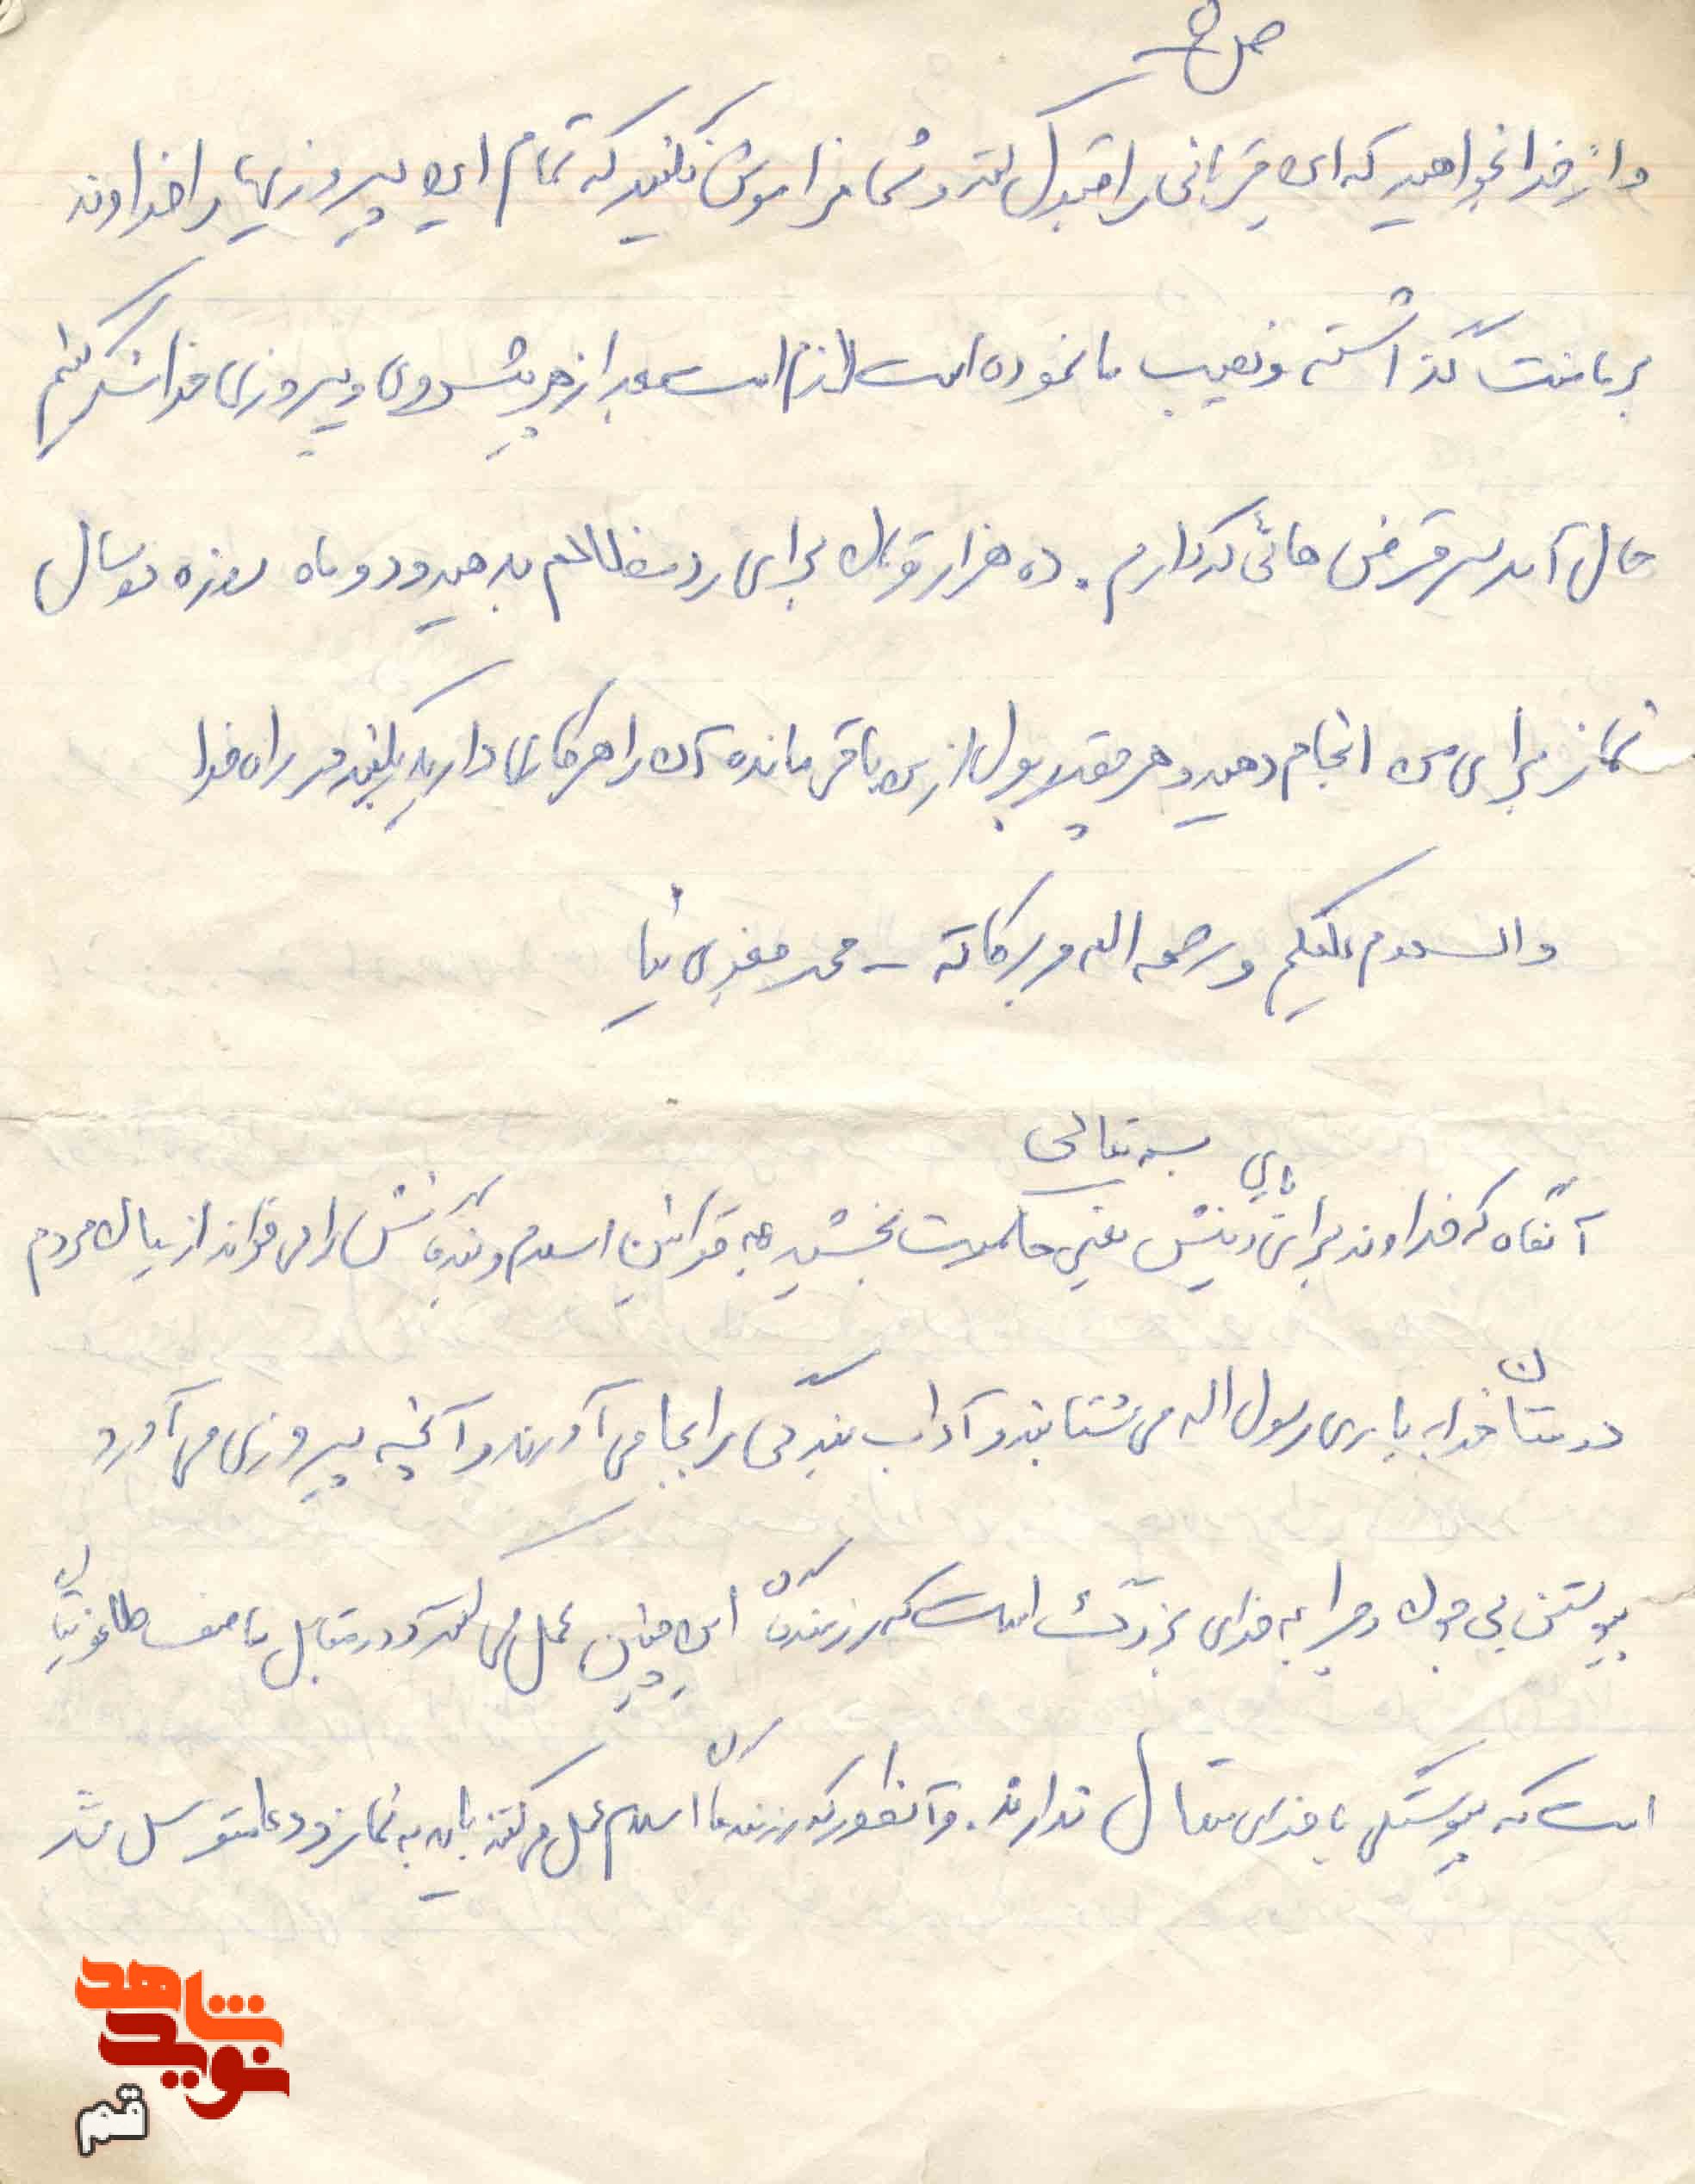 ص ۵
و از خدا بخواهید که این قربانی را قبول کند و شما فراموش نکنید که تمام این پیروزیها را خداوند
بر ما منت گذاشته و نصیب ما نموده است لازم است بعد از هر پیشروی و پیروزی خدا شکر کنیم
حال آمد سر قرض هائی که دارم . ده هزار تومان برای رد مظالم بدهید و دو ماه روزه دو سال
نماز برای من انجام دهید و هر چقدر پول از من باقی مانده آن را هر کاری دارید بکنید در راه خدا
والسلام علیکم و رحمه اله و برکاته - محمد صفری نیا
بسمه تعالی
آنگاه که خداوند برای یاری دینش نفیر بخشید به قوانین اسلام و بندگانش را می خواند از میان مردم
دوستان خدا به یاری رسول اله می شتابند و آداب بندگی را بجا می آورند و آنچه پیروزی می آورد
پیوستن بی چون و چرا به خدای بزرگ است که رزمندگان این چنین عمل می کنند و در مقابل ما صف طاغوتیان
است که پیوستگی با خدای متعال ندارند . و آنطور که رزمندگان اسلام عمل می کنند باید به نماز و دعا متوسل شد
شاهد
نوید
قم